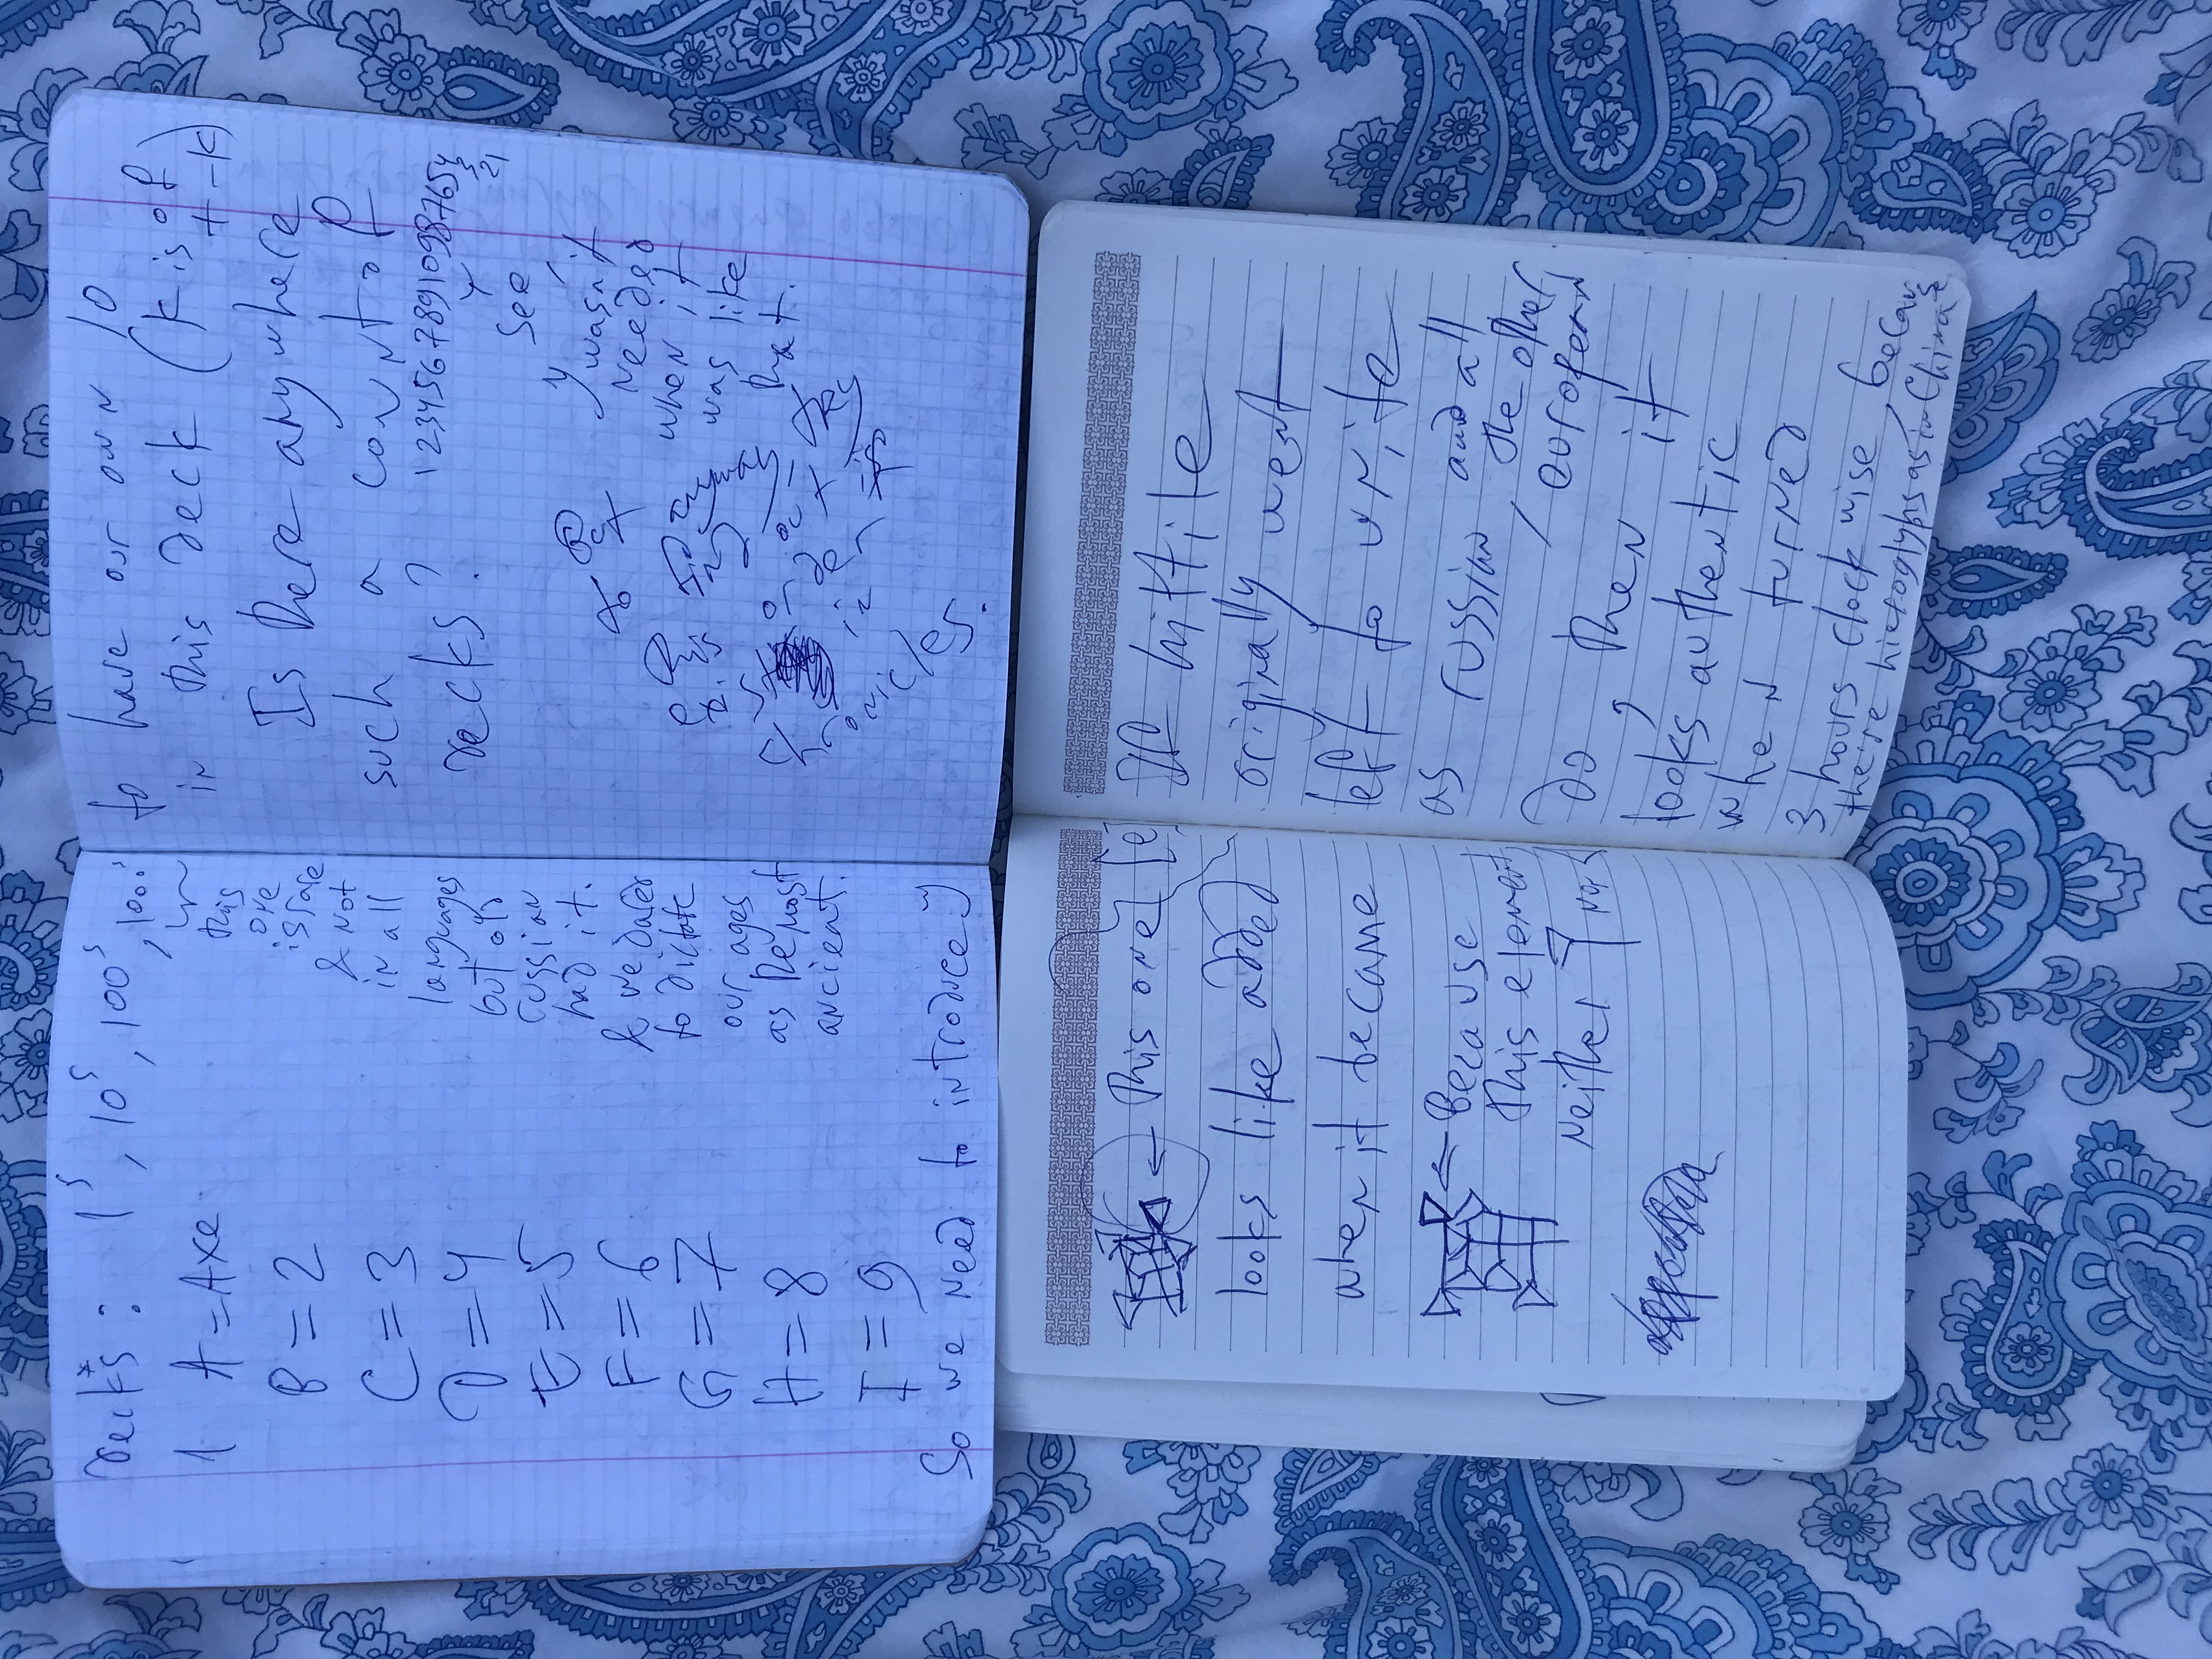 decks*: 1s, 10s, 100s, 1000s
1 A = Axe
B = 2
C = 3
D = 4
E = 5
F = 6
G = 7
H = 8
I = 9
this
one
is rare
& not
in all
languages
but old
russian
had it.
& we dared
to dictate
our ages
as the most
ancient.
So we need to introduce y
to have our own 10
in this deck (K is of
+ -K)
Is there anywhere
such a count of
decks? 12345678910987654
321
Y
see
y wasn't
needed
when it
was like
that.
order
out
in
← This one
looks like added
when it became
← Because
this element
neither nor
If hittite
originally went
left to write
as russian and all
the other
european
do, then it
looks authentic
when turned
3 hours clockwise, because
theire hieroglyphs as in China